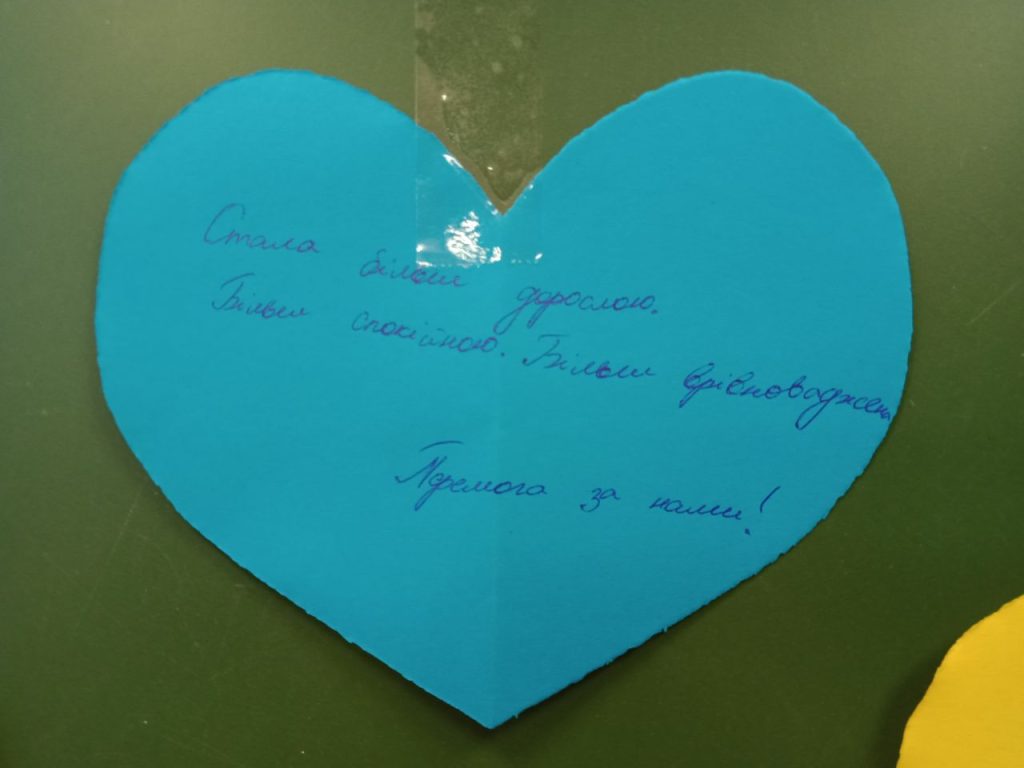 Стала більш дорослою.
Більш спокійною. Більш врівноважена
Перемога за нами!